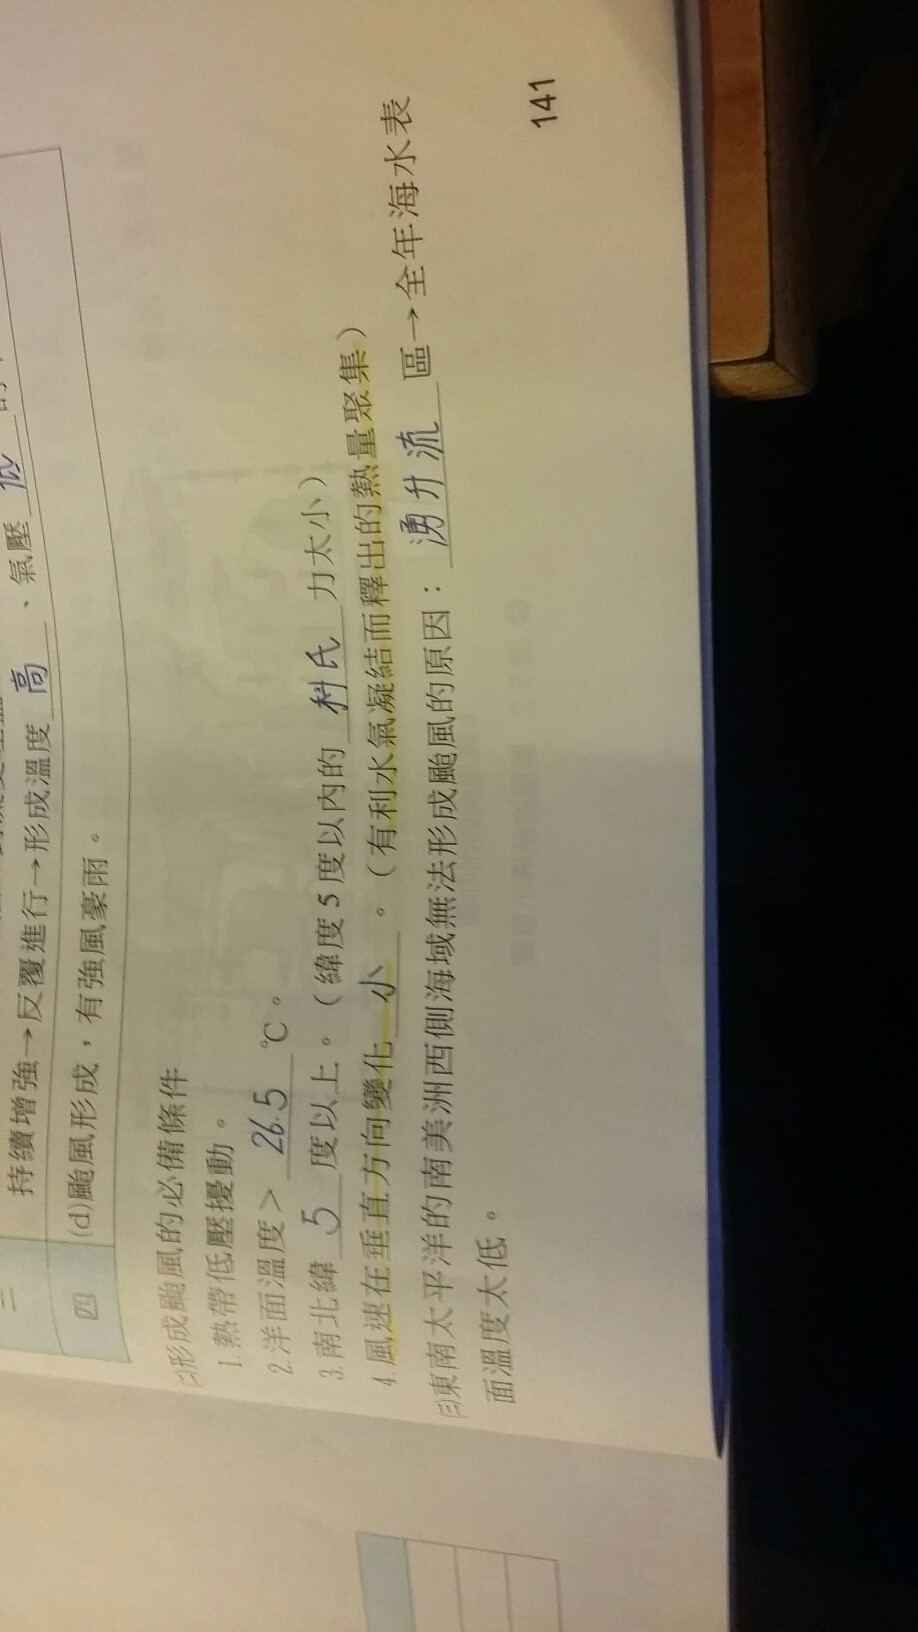 持續增強→反覆進行→形成溫度高、氣壓低
四
(d)颱風形成，有強風豪雨。
㈡形成颱風的必備條件
1.熱帶低壓擾動。
2.洋面溫度＞26.5℃。
3.南北緯5度以上。（緯度5度以內的科氏力太小）
4.風速在垂直方向變化小。（有利水氣凝結而釋出的熱量聚集）
㈢東南太平洋的南美洲西側海域無法形成颱風的原因：湧升流區→全年海水表
面溫度太低。
141